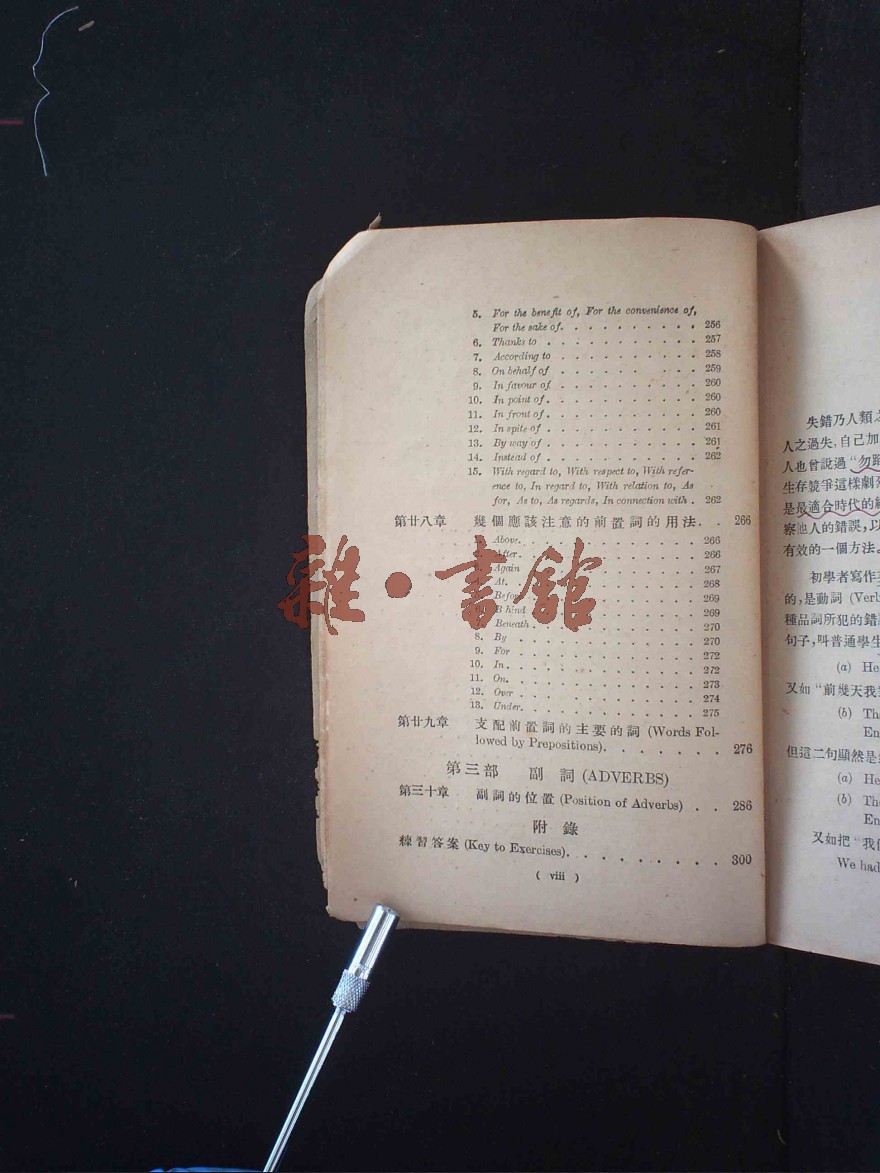 5. For the benefit of, For the convenience of,
For the sake of. . . . . . . . . . . 256
6. Thanks to . . . . . . . . . . . 257
7. According to . . . . . . . . . . 258
8. On behalf of . . . . . . . . . 259
9. In favour of. . . . . . . . . . . 260
10. In point of. . . . . . . . . . . 260
11. In front of. . . . . . . . . . . 260
12. In spite of . . . . . . . . . . . 261
13. By way of . . . . . . . . . . . 261
14. Instead of . . . . . . . . . . . 262
15. With regard to, With respect to, With refer-
ence to, In regard to, With relation to, As
for, As to, As regards, In connection with . 262
第廿八章 幾個應該注意的前置詞的用法. . 266
Above. . . . . . . . . . . . . 266
After. . . . . . . . . . . . . 266
Again . . . . . . . . . . . . 267
At. . . . . . . . . . . . . . 268
Befor . . . . . . . . . . . . 269
B hind . . . . . . . . . . . 269
Beneath . . . . . . . . . . . 270
8. By . . . . . . . . . . . . . 270
9. For . . . . . . . . . . . . . 272
10. In. . . . . . . . . . . . . . 272
11. On. . . . . . . . . . . . . . 273
12. Over . . . . . . . . . . . . 274
13. Under. . . . . . . . . . . . 275
第廿九章 支配前置詞的主要的詞 (Words Fol-
lowed by Prepositions). . . . . . . 276
第三部 副詞 (ADVERBS)
第三十章 副詞的位置 (Position of Adverbs) . . 286
附錄
練習答案 (Key to Exercises). . . . . . . . . 300
( viii )
雜·書館
失錯乃人類
人之過失,自己加
人也曾說過“勿蹈
生存競爭這樣劇
是最適合時代的
察他人的錯誤,以
有效的一個方法。
初學者寫作
的,是動詞 (Verb
種品詞所犯的錯
句子,叫普通學生
(a) He
又如“前幾天我
(b) Th
En
但這二句顯然是
(a) He
(b) The
En
又如把“我
We had